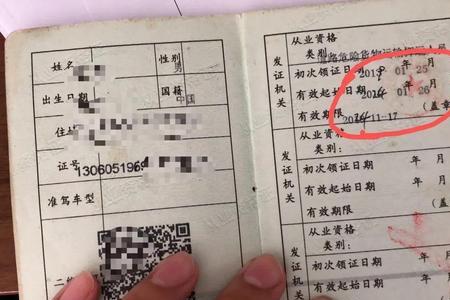 姓名
性别
男
出生日期
国籍
中国
住
证号
130605196
准驾车型
二
发证机关
从业资格
类别:
道路危险货物运输押运人员
初次领证日期 2013 年 01 25 月
有效起始日期 2024 年 01 26 月
有效期限 2024-11-17 (盖章
发证机关
从业资格
类别:
初次领证日期 年 月
有效起始日期 年 月
有效期限 (盖
发证机关
从业资格
类别:
初次领证日期 年
有效起始日期 年